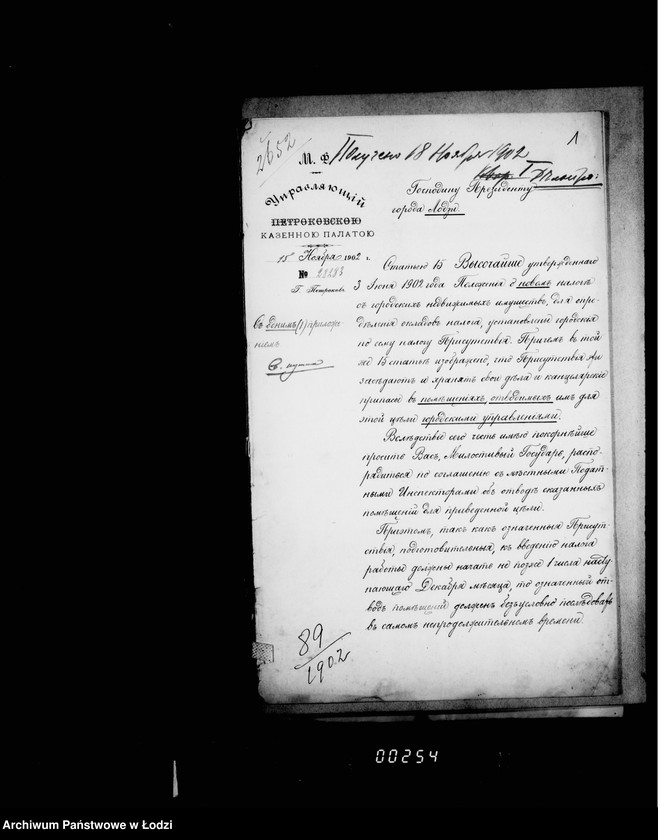 2652
1
М. Ф.
Получено 18 Ноября 1902
Управляющій
ПЕТРОКОВСКОЮ
КАЗЕННОЮ ПАЛАТОЮ
15 Ноября 1902 г.
№
Г. Петроковъ.
Господину Президенту
города Лодзи
Статьею 15 Высочайше утвержденнаго
3 Іюня 1902 года Положенія о новомъ налогѣ
съ городскихъ недвижимыхъ имуществъ, для опре-
дѣленія окладовъ налога, установлены городскія
по сему налогу Присутствія. Причемъ въ той
же 15 статьѣ изображено, что Присутствія
засѣдаютъ и хранятъ свои дѣла и канцелярскіе
припасы въ помѣщеніяхъ, отводимыхъ имъ для
этой цѣли городскими управленіями.
Вслѣдствіе сего честь имѣю покорнѣйше
просить Васъ, Милостивый Государь, распо-
рядиться по соглашенію съ мѣстными Подат-
ными Инспекторами объ отводѣ сказанныхъ
помѣщеній для приведенной цѣли.
Притомъ, такъ какъ означенныя Присут-
ствія, подготовительныя, къ введенію налога
работы должны начать не позже 1 числа насту-
пающаго Декабря мѣсяца, то означенный от-
водъ помѣщеній долженъ безусловно послѣдовать
въ самомъ непродолжительномъ времени.
89
1902
00254
Archiwum Państwowe w Łodzi